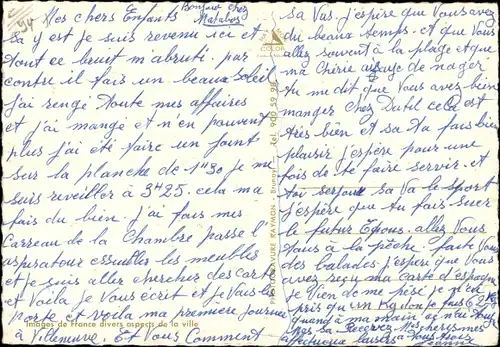 Bonjour chez
Marabou
94
Mes chers Enfants
Sa y est je suis revenu ici et
tout ce bruit m'abruti. par
contre il fait un beau soleil
j'ai rengé toute mes affaires
et j'ai mangé et n'en pouvent
plus j'ai été faire un somme
sur la planche de 1H30 je me
suis reveiller à 3H25. cela ma
fais du bien. j'ai fais mes
Carreau de la Chambre passe l'
aspirateur essuller les meubles
et je suis aller chercher des carte
et Voila je Vous écrit et je Vais les
porte et voila ma première journée
à Villeneuve. Et Vous Comment
sa Vas. j'espère que Vous avez
du beau temps. et que Vous
allez souvent à la plage et que
ma Chérie essaye de nager
tu me dit que Vous avez bien
manger chez Datil cela est
très bien et sa tu fais bien
plaisir j'espère pour une
fois de te faire servir. et
toi sa Va le sport
j'espère que tu fais suer
le futur Epous. allez Vous
à la pêche. faite Vous
des balades. j'espère que Vous
avez reçu ma Carte d'espagne
je Vien de me pesé je n'ai
pris qu'un Kg don je fais 62 Kg
quand à ma main
sa. Recevez Mes chere mes
affectueux baisers
PHOTOGRAVURE RAYMON - Brunoy
Tél. 900 59 98
COLOR
Images de France divers aspects de la ville